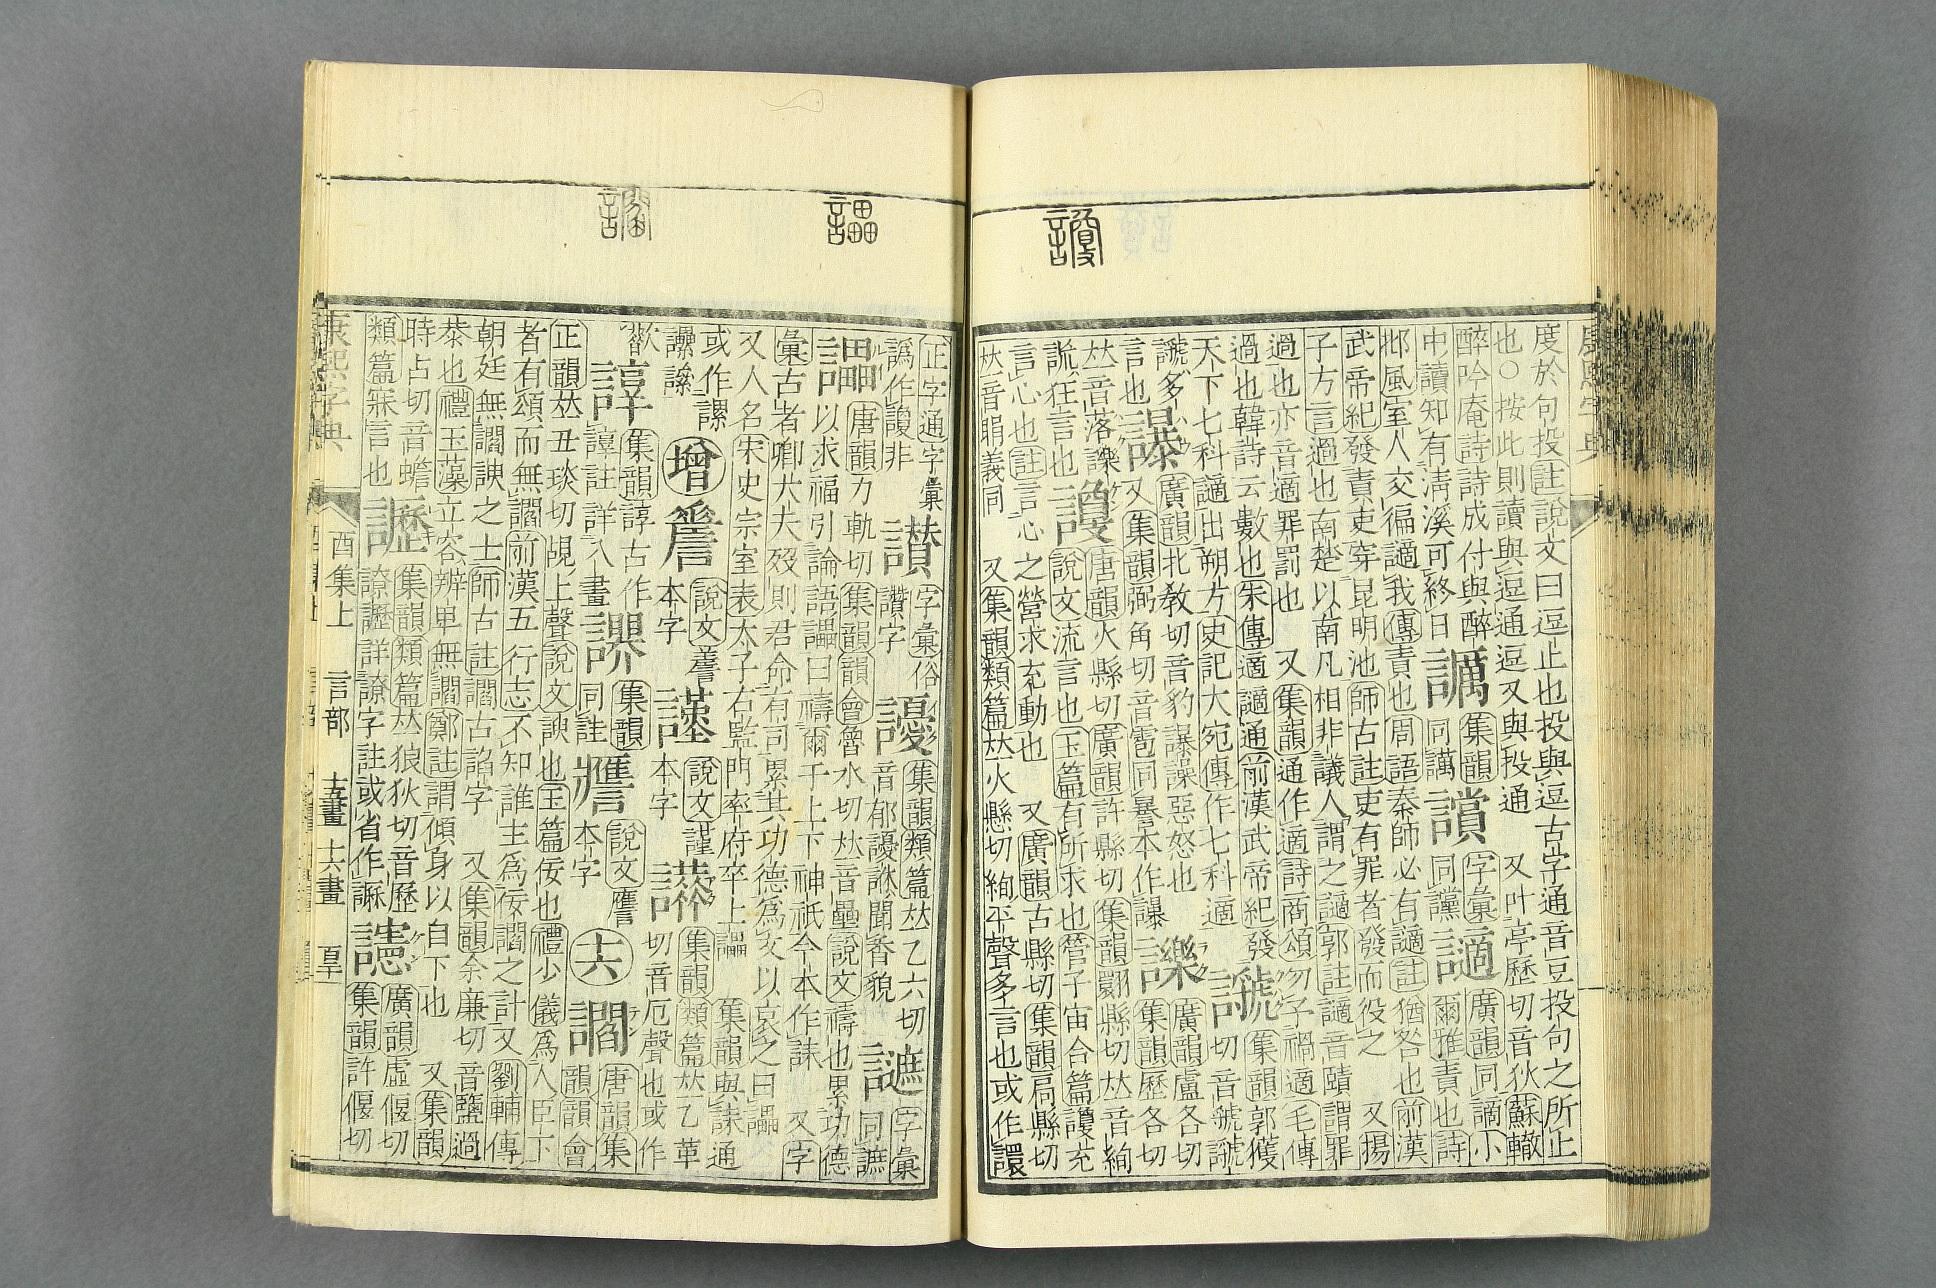 度於句投註說文曰逗止也投與逗古字通音豆投句之所止
也○按此則讀與逗通逗又與投通 又叶亭歷切音狄蘇轍
醉吟庵詩詩成付與醉
中讀知有淸溪可終日
讁
集韻
同讁
讜
字彙
同讜
謫
廣韻同謫
爾雅責也詩
邶風室人交徧讁我傳責也周語秦師必有讁註猶咎也前漢
武帝紀發責吏穿昆明池師古註吏有罪者發而役之 又揚
子方言過也南楚以南凡相非議人謂之讁郭註讁音賾謂罪
過也亦音適罪罰也 又集韻通作適詩商頌勿予禍適毛傳
過也韓詩云數也朱傳適讁通前漢武帝紀發
天下七科讁出朔方史記大宛傳作七科適
言也
謈
廣韻北敎切音豹謈譟惡怒也
又集韻弼角切音雹同㬥本作謈
廣韻盧各切
集韻歷各切
𠀤音落
謊狂言也
言心也註言心之營求充動也
說文流言也玉篇有所求也管子宙合篇
唐韻火縣切廣韻許縣切集韻翾縣切𠀤音絢
又廣韻古縣切集韻扃縣切
𠀤音睊義同 又集韻類篇𠀤火懸切絢平聲多言也或作譞
康熙字典
正字通字彙
讃
字彙俗
讚字
集韻類篇𠀤乙六切
音郁
聞香貌
謶
字彙
同謶
讄
唐韻力軌切集韻韻會魯水切𠀤音壘說文禱也累功德
以求福引論語讄曰禱爾于上下神祇今本作誄 又字
彙古者卿大夫歿則君命有司累其功德爲文以哀之曰讄
又人名宋史宗室表太子右監門率府卒上讄 集韻與誄通
或作
增
詹
說文
本字
謹
說文
本字
集韻類篇𠀤乙革
切音厄聲也或作
諄
集韻諄古作
註詳八畫
集韻
同註
譍
說文譍
本字
十六
讇
唐韻集
韻韻會
正韻𠀤丑琰切覘上聲說文諛也玉篇佞也禮少儀爲人臣下
者有頌而無讇前漢五行志不知誰主爲佞讇之計又劉輔傳
朝廷無讇諛之士師古註讇古諂字 又集韻余廉切音鹽過
恭也禮玉藻立容辨卑無讇鄭註謂傾身以自下也 又集韻
時占切音蟾
類篇寐言也
讈
集韻類篇𠀤狼狄切音歷
讈詳
字註或省作
讞
廣韻虛偃切
集韻許偃切
康熙字典
酉集上
言部
十五畫
十六畫